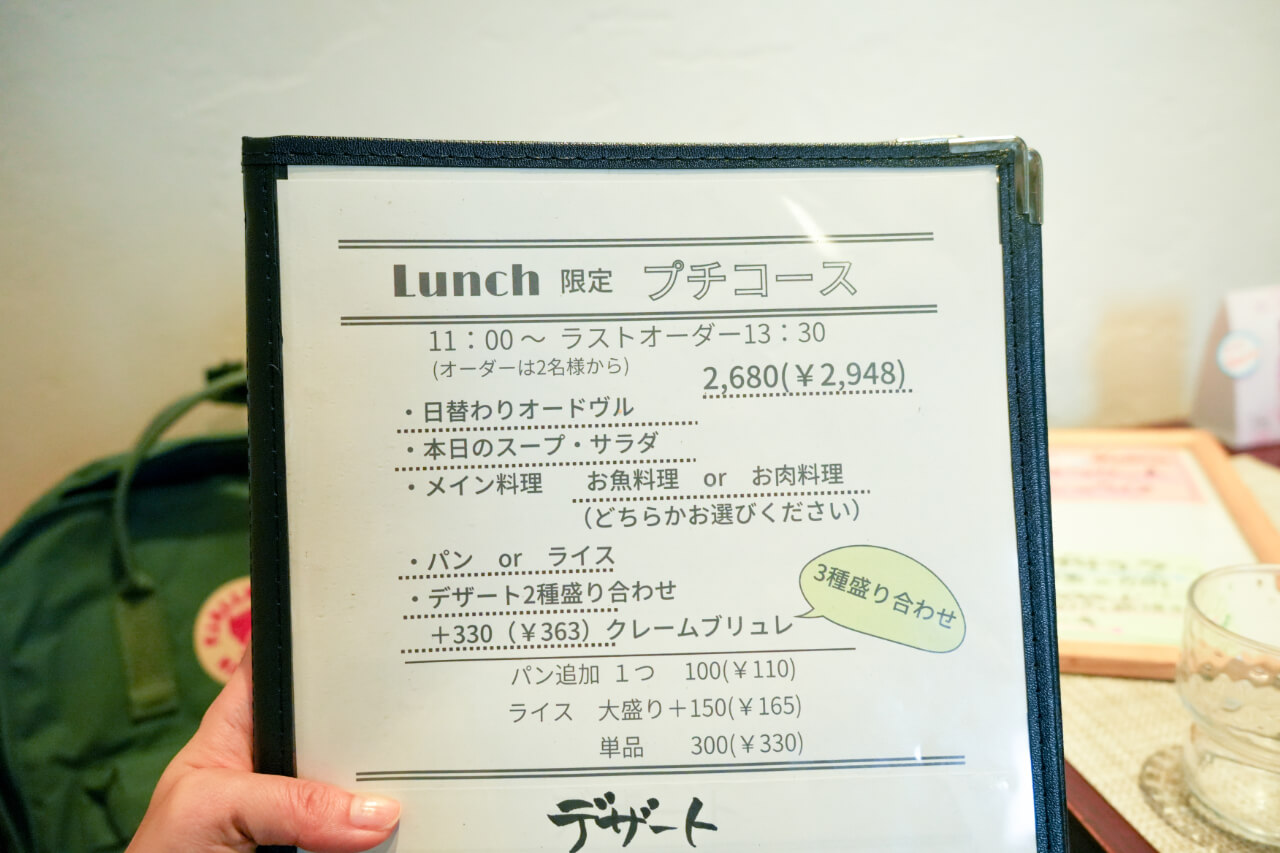 Lunch 限定 プチコース
11：00～ ラストオーダー13：30
(オーダーは2名様から)
2,680(￥2,948)
・日替わりオードヴル
・本日のスープ・サラダ
・メイン料理 お魚料理 or お肉料理
（どちらかお選びください）
・パン or ライス
・デザート2種盛り合わせ
＋330（￥363）クレームブリュレ
3種盛り合わせ
パン追加 １つ 100(￥110)
ライス 大盛り＋150(￥165)
単品 300(￥330)
デザート